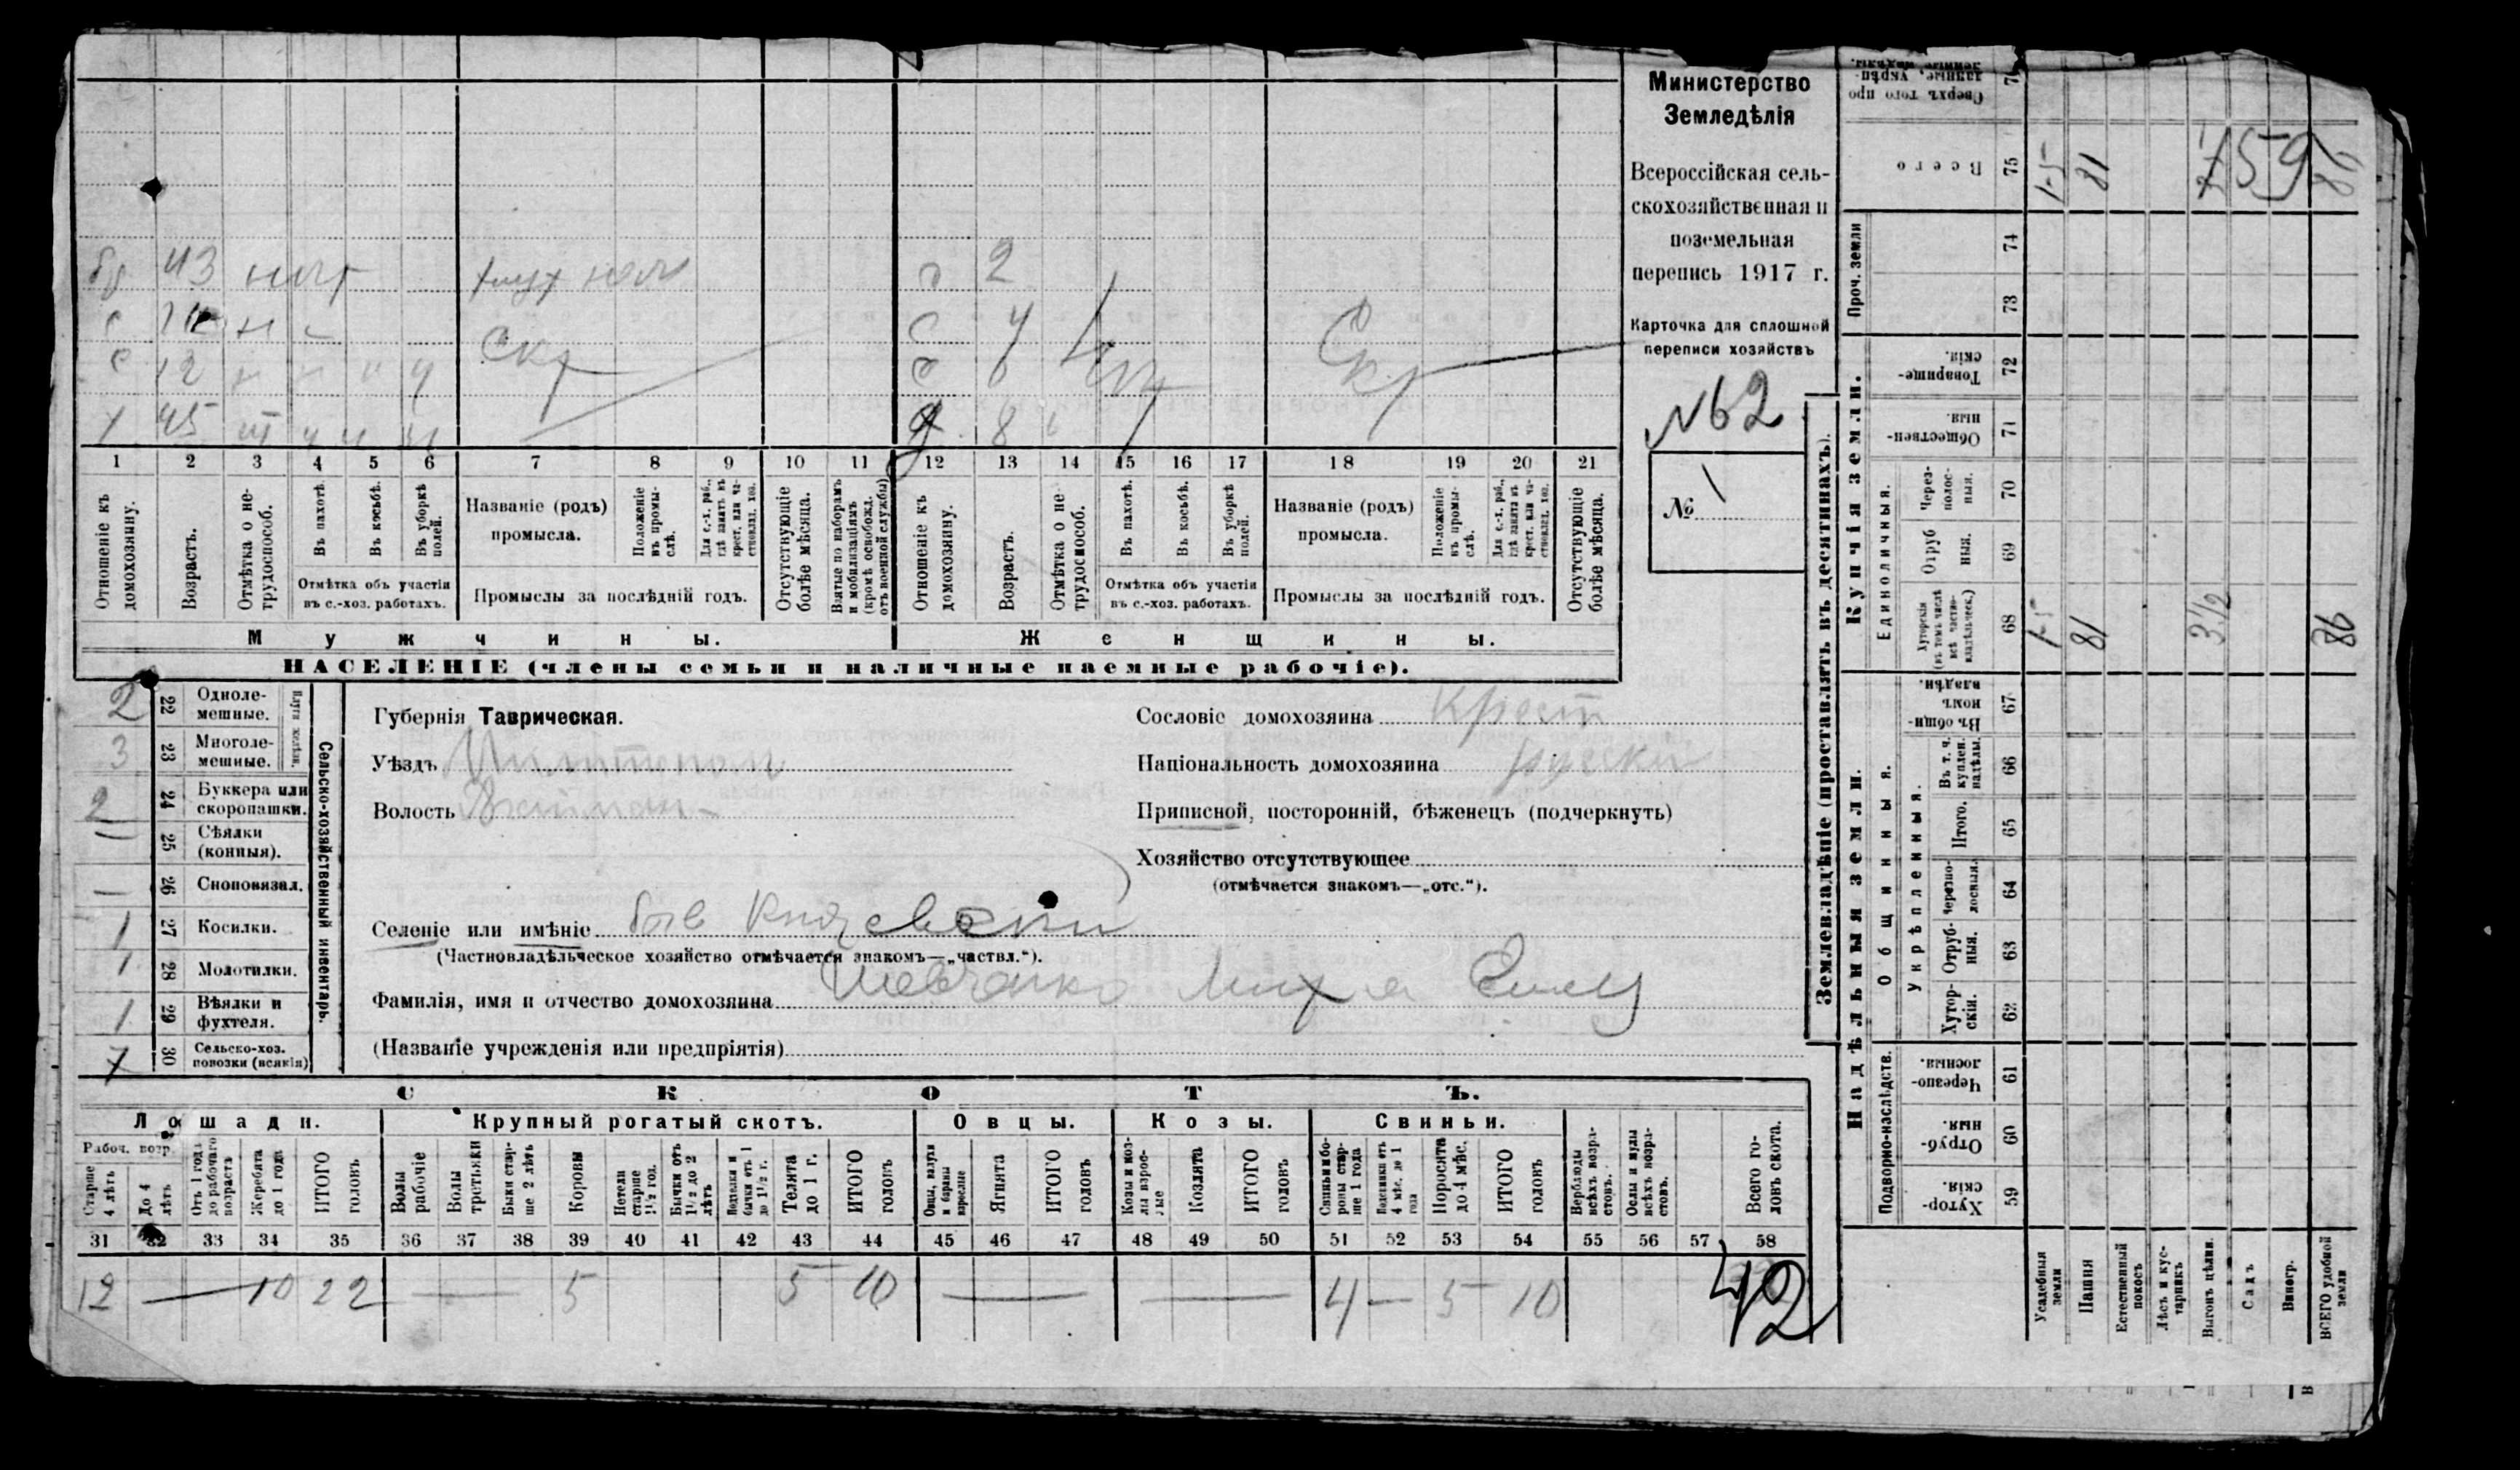 Министерство
Земледѣлія
Всероссійская сель-
скохозяйственная и
поземельная
перепись 1917 г.
Карточка для сплошной
переписи хозяйствъ
№ 62
№ 1
бр 43
с 12 н н н ч
45
с 2
с 4
с 6
8
Скр
Скр
1 2 3 4 5 6 7 8 9 10 11 12 13 14 15 16 17 18 19 20 21
Отношеніе къ домохозяину.
Возрастъ.
Отмѣтка о не-трудоспособ.
Въ пахотѣ.
Въ косьбѣ.
Въ уборкѣ полей.
Отмѣтка объ участіи
въ с.-хоз. работахъ.
Названіе (родъ)
промысла.
Положеніе въ промы-слѣ.
Для с.-х. раб., гдѣ занятъ въ крест. или ча-стновлад. хоз.
Промыслы за послѣдній годъ.
Отсутствующіе болѣе мѣсяца.
Взятые по наборамъ и мобилизаціямъ (кромѣ освобожд. отъ военной службы)
Отношеніе къ домохозяину.
Возрастъ.
Отмѣтка о не-трудоспособ.
Въ пахотѣ.
Въ косьбѣ.
Въ уборкѣ полей.
Отмѣтка объ участіи
въ с.-хоз. работахъ.
Названіе (родъ)
промысла.
Положеніе въ промы-слѣ.
Для с.-х. раб., гдѣ занята въ крест. или ча-стновлад. хоз.
Промыслы за послѣдній годъ.
Отсутствующіе болѣе мѣсяца.
Мужчины.
Женщины.
НАСЕЛЕНІЕ (члены семьи и наличные наемные рабочіе).
2 22 Одноле-мешные.
3 23 Многоле-мешные.
2 24 Буккера или скоропашки.
— 25 Сѣялки (конныя).
— 26 Сноповязал.
1 27 Косилки.
1 28 Молотилки.
1 29 Вѣялки и фухтеля.
7 30 Сельско-хоз. повозки (всякія)
Плуги желѣзн.
Сельско-хозяйственный инвентарь.
Губернія Таврическая.
Уѣздъ Мелитопол
Волость
Селеніе или имѣніе быв Князевски
(Частновладѣльческое хозяйство отмѣчается знакомъ—„частвл.“).
Фамилія, имя и отчество домохозяина Шевченко
(Названіе учрежденія или предпріятія)
Сословіе домохозяина Крест
Національность домохозяина русски
Приписной, посторонній, бѣженецъ (подчеркнуть)
Хозяйство отсутствующее
(отмѣчается знакомъ—„отс.“).
СКОТЪ.
Лошади.
Крупный рогатый скотъ.
Овцы.
Козы.
Свиньи.
Рабоч. возр.
Старше 4 лѣтъ
До 4 лѣтъ
Отъ 1 года до рабочаго возраста
Жеребята до 1 года
ИТОГО головъ
Волы рабочіе
Волы третьяки
Быки стар-ше 2 лѣтъ
Коровы
Нетели старше 1½ год.
Бычки отъ 1½ до 2 лѣтъ
Подтелки и бычки отъ 1 до 1½ г.
Телята до 1 г.
ИТОГО головъ
Овцы, валухи и бараны взрослые
Ягнята
ИТОГО головъ
Козы и коз-лы взрос-лые
Козлята
ИТОГО головъ
Свиньи и бо-ровы стар-ше 1 года
Подсвинки отъ 4 мѣс. до 1 года
Поросята до 4 мѣс.
ИТОГО головъ
Верблюды всѣхъ возра-стовъ.
Ослы и мулы всѣхъ возра-стовъ.
Всего го-ловъ скота.
31 32 33 34 35 36 37 38 39 40 41 42 43 44 45 46 47 48 49 50 51 52 53 54 55 56 57 58
12 — 10 22 — 5 5 10 — — 4 — 5 10 42
Землевладѣніе (проставлять въ десятинахъ).
Надѣльныя земли.
Купчія земли.
Проч. земли
Подворно-наслѣдств.
Общинныя.
Укрѣпленныя.
Единоличныя.
Сверхъ того про
Всего 75
74
73
Товарище-скія. 72
Обществен-ныя. 71
Через-полос-ныя. 70
Отруб-ныя. 69
Хуторскія (въ томъ числѣ всѣ частно-владѣльческ.) 68
Въ общи-номъ владѣн. 67
Въ т. ч. куплен. надѣлы. 66
Итого. 65
Черезпо-лосныя. 64
Отруб-ныя. 63
Хутор-скія. 62
Черезпо-лосныя. 61
Отруб-ныя. 60
Хутор-скія. 59
Усадебныя земли
Пашня
Естественный покосъ
Лѣсъ и кус-тарникъ
Выгонъ цѣлин.
Садъ
Виногр.
ВСЕГО удобной земли
1-5 81 86
1-5 81 3½ 86
759